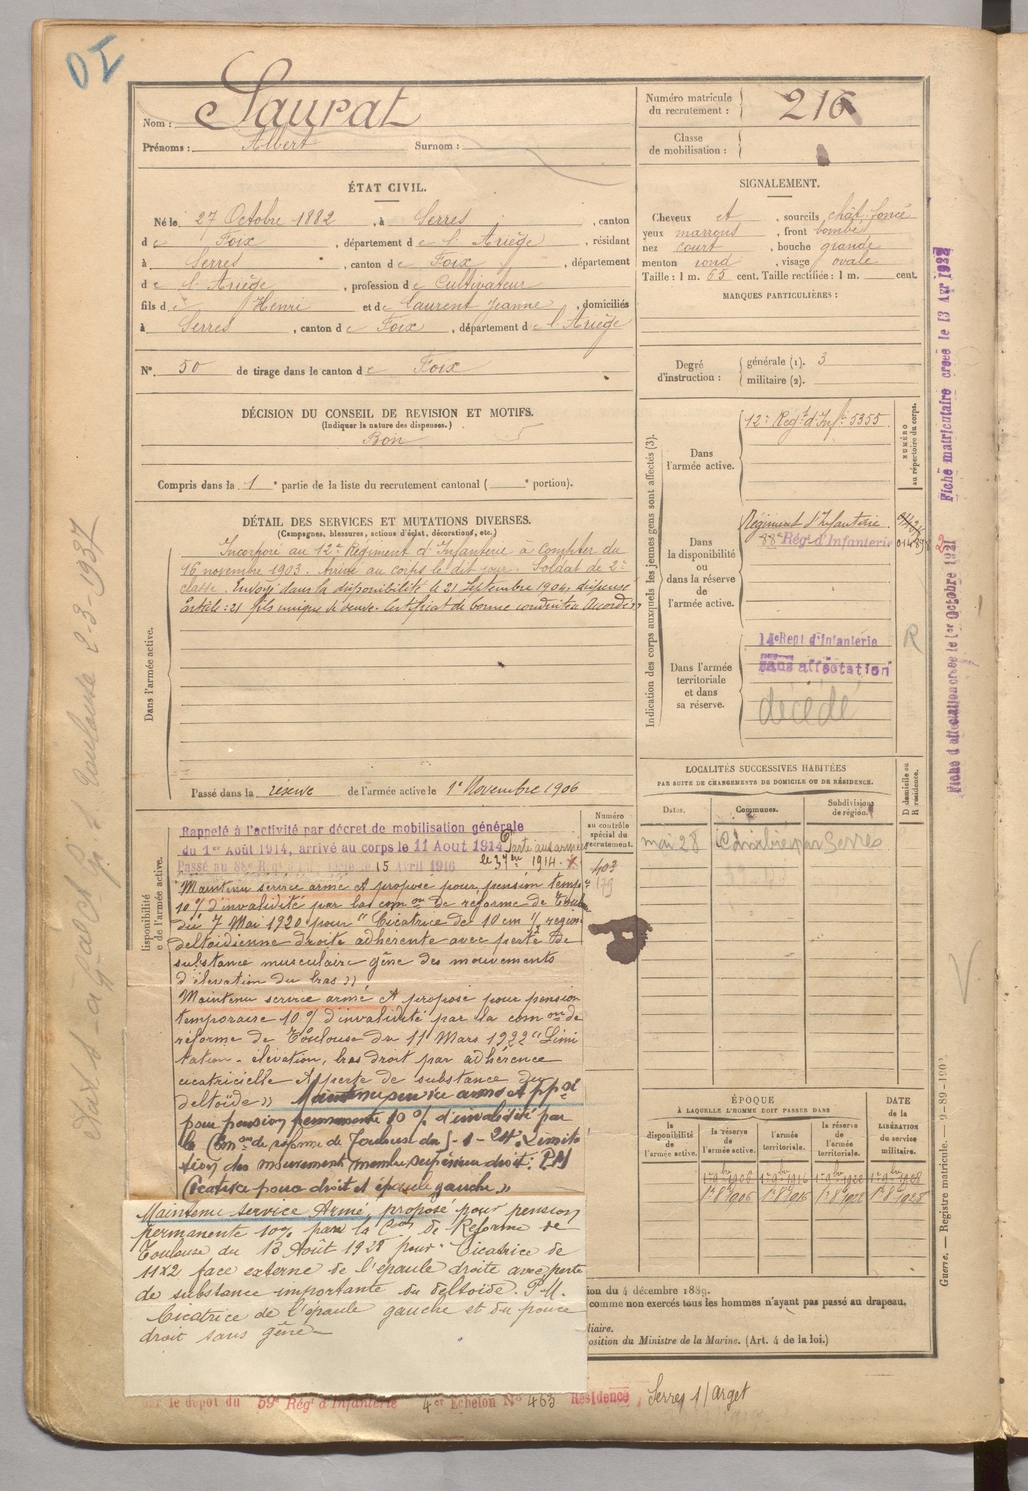 Nom : Saurat
Prénoms : Albert Surnom :
Numéro matricule du recrutement : 216
Classe de mobilisation :
ÉTAT CIVIL.
Né le 27 Octobre 1882, à Serres, canton
de Foix, département de l'Ariège, résidant
à Serres, canton de Foix, département
de l'Ariège, profession de Cultivateur
fils de Henri et de Laurent Jeanne, domiciliés
à Serres, canton de Foix, département de l'Ariège
N° 50 de tirage dans le canton de Foix
DÉCISION DU CONSEIL DE REVISION ET MOTIFS.
(Indiquer la nature des dispenses.)
Bon
Compris dans la 1e partie de la liste du recrutement cantonal ( e portion).
DÉTAIL DES SERVICES ET MUTATIONS DIVERSES.
(Campagnes, blessures, actions d'éclat, décorations, etc.)
Dans l'armée active.
Incorporé au 12e Régiment d'Infanterie à compter du
16 novembre 1903. Arrivé au corps le dit jour. Soldat de 2e
classe. Envoyé dans la disponibilité le 21 Septembre 1904, dispensé
Article : 21 fils unique de veuve. Certificat de bonne conduite Accordé
Passé dans la réserve de l'armée active le 1er Novembre 1906
isponibilité
e de l'armée active.
Rappelé à l'activité par décret de mobilisation générale
du 1er Août 1914, arrivé au corps le 11 Aout 1914 Parti aux armées
le 1914.
Passé au 88e 15 Avril 1916
Maintenu service armé et proposé pour pension temp
10 % d'invalidité par la com on de réforme de Toul
du 7 Mai 1920 pour "Cicatrice de 10 cm région
deltoïdienne droite adhérente avec perte de
substance musculaire gêne des mouvements
d'élévation du bras »
Maintenu service armé et proposé pour pension
temporaire 10 % d'invalidité par la com on de
réforme de Toulouse du 11 Mars 1922 "Limi
tation - élévation, bras droit par adhérence
cicatricielle et perte de substance du
deltoïde » Maintenu service armé et pp é
pour pension permanente 10 % d'invalidité par
la Com on de réforme de Toulouse du 1-24. Limita
tion des mouvement membre supérieur droit. P.M
Cicatrice pouce droit et épaule gauche »
Maintenu Service Armé, proposé pour pension
permanente 10% par la Con de Réforme de
Toulouse du 13 Août 1928 pour : Cicatrice de
11x2 face externe de l'épaule droite avec perte
de substance importante du deltoïde. P.M.
Cicatrice de l'épaule gauche et du pouce
droit sans gêne
Numéro au contrôle spécial du recrutement.
403
179
SIGNALEMENT.
Cheveux et, sourcils chât. foncé
yeux marrons, front bombé
nez court, bouche grande
menton rond, visage ovale
Taille : 1 m. 65 cent. Taille rectifiée : 1 m. cent.
MARQUES PARTICULIÈRES :
Degré d'instruction :
générale (1). 3
militaire (2).
Indication des corps auxquels les jeunes gens sont affectés (3).
NUMÉRO au répertoire du corps.
Dans l'armée active.
12e Régt d'Inf. 5355
Dans la disponibilité ou dans la réserve de l'armée active.
Régiment d'Infanterie
88e Régt d'Infanterie
Dans l'armée territoriale et dans sa réserve.
14e Regt d'Infanterie
Sans affectation
décédé
R
LOCALITÉS SUCCESSIVES HABITÉES
PAR SUITE DE CHANGEMENTS DE DOMICILE OU DE RÉSIDENCE.
Dates. Communes. Subdivisions de région. D domicile ou R résidence.
mai 28 par Serres
ÉPOQUE
À LAQUELLE L'HOMME DOIT PASSER DANS
la disponibilité de l'armée active.
la réserve de l'armée active.
l'armée territoriale.
la réserve de l'armée territoriale.
DATE de la LIBÉRATION du service militaire.
1er 9bre 1906 1er 9bre 1916 1er 9bre 1922 1er 9bre 1928
ion du 4 décembre 1889.
comme non exercés tous les hommes n'ayant pas passé au drapeau.
liaire.
osition du Ministre de la Marine. (Art. 4 de la loi.)
le dépôt du 59e Régt d'Infanterie 4er Echelon N° 463 Résidence, Serres s/ Arget
Fiche matriculaire créée le 13 Avr 1922
Fiche d'affectation créée le 1er Octobre 1921
Guerre. — Registre matricule.
Toulouse 2-3-1937